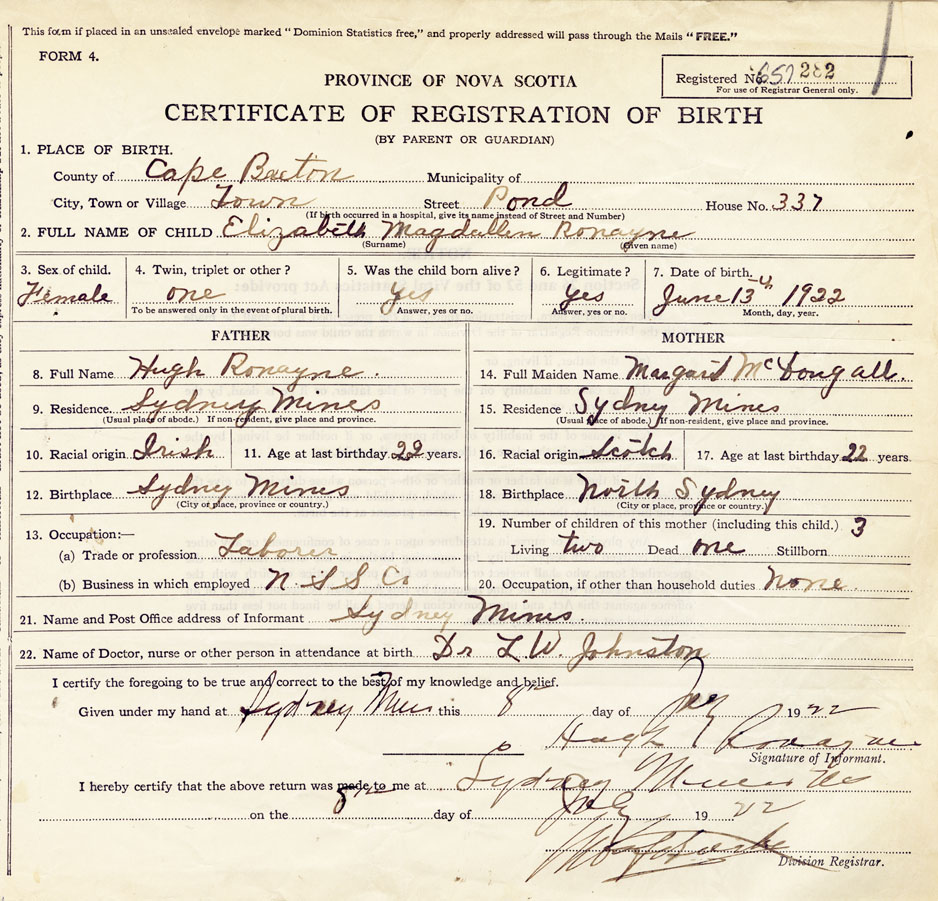 This form if placed in an unsealed envelope marked "Dominion Statistics free," and properly addressed will pass through the Mails "FREE."
FORM 4.
PROVINCE OF NOVA SCOTIA
Registered No. 657 282
For use of Registrar General only.
CERTIFICATE OF REGISTRATION OF BIRTH
(BY PARENT OR GUARDIAN)
1. PLACE OF BIRTH.
County of Cape Breton Municipality of
City, Town or Village Town Street Pond House No. 337
(If birth occurred in a hospital, give its name instead of Street and Number)
2. FULL NAME OF CHILD Elizabeth Magdallen Ronayne
(Surname) (Given name)
3. Sex of child. 4. Twin, triplet or other? 5. Was the child born alive? 6. Legitimate? 7. Date of birth.
Female one yes yes June 13th 1922
To be answered only in the event of plural birth. Answer, yes or no. Answer, yes or no. Month, day, year.
FATHER MOTHER
8. Full Name Hugh Ronayne. 14. Full Maiden Name Margaret McDougall.
9. Residence. Sydney Mines 15. Residence Sydney Mines
(Usual place of abode.) If non-resident, give place and province. (Usual place of abode.) If non-resident, give place and province.
10. Racial origin Irish 11. Age at last birthday 22 years. 16. Racial origin Scotch 17. Age at last birthday 22 years.
12. Birthplace Sydney Mines 18. Birthplace North Sydney
(City or place, province or country.) (City or place, province or country.)
13. Occupation:— 19. Number of children of this mother (including this child.) 3
(a) Trade or profession Laborer Living two Dead one Stillborn
(b) Business in which employed N S S Co 20. Occupation, if other than household duties None
21. Name and Post Office address of Informant Sydney Mines.
22. Name of Doctor, nurse or other person in attendance at birth Dr L. W. Johnston
I certify the foregoing to be true and correct to the best of my knowledge and belief.
Given under my hand at Sydney Mines this 8th day of July 1922
Hugh Ronayne
Signature of Informant.
I hereby certify that the above return was made to me at Sydney Mines
on the 8th day of July 1922
Division Registrar.